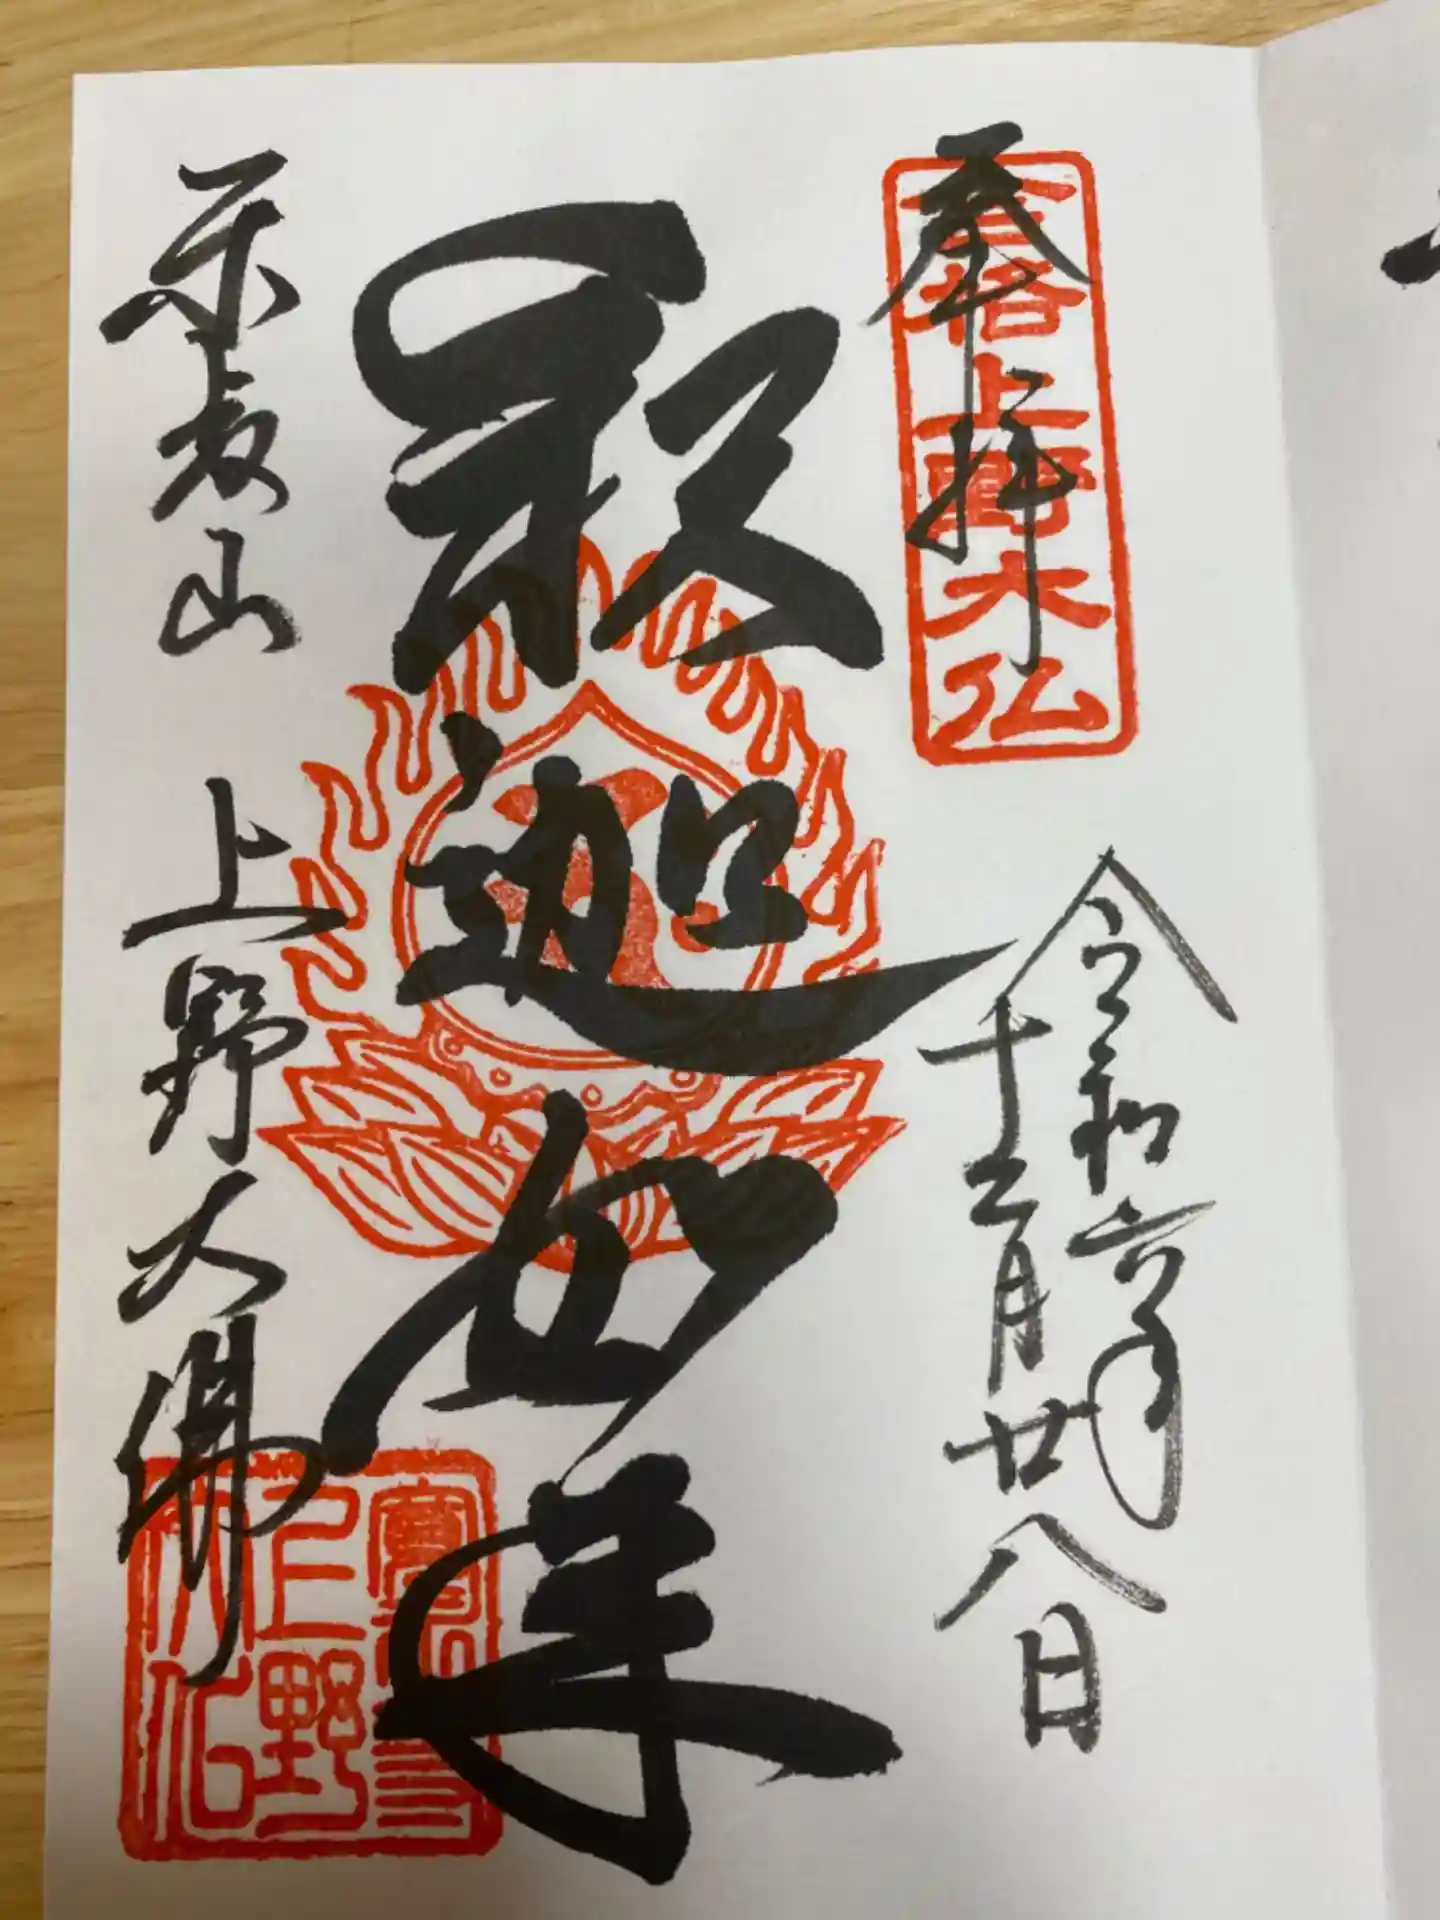 奉拝
合格上野大仏
令和六年
十二月廿八日
釈迦如来
東叡山
上野大佛
寛永寺
上野
大仏